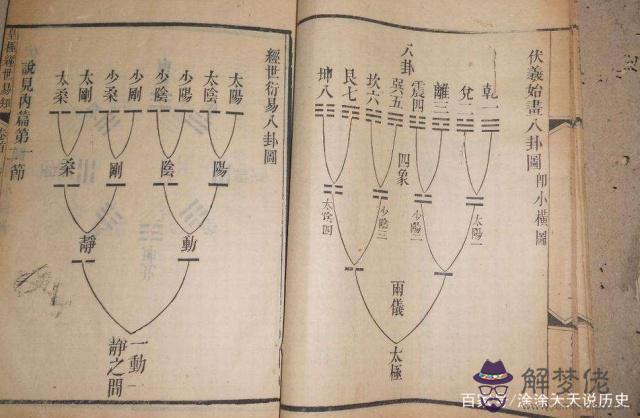 伏羲始畫八卦圖 即小橫圖
八卦
乾一
兌二
離三
震四
巽五
坎六
艮七
坤八
四象
太陽一
少陽二
少陰三
太陰四
兩儀
太極
經世衍易八卦圖
太陽
太陰
少陽
少陰
少剛
少柔
太剛
太柔
陽
陰
剛
柔
動
靜
一動一
靜之間
說見內篇第一節
皇極經世易知 卷首
解梦佬
百家号/涂涂天天说历史